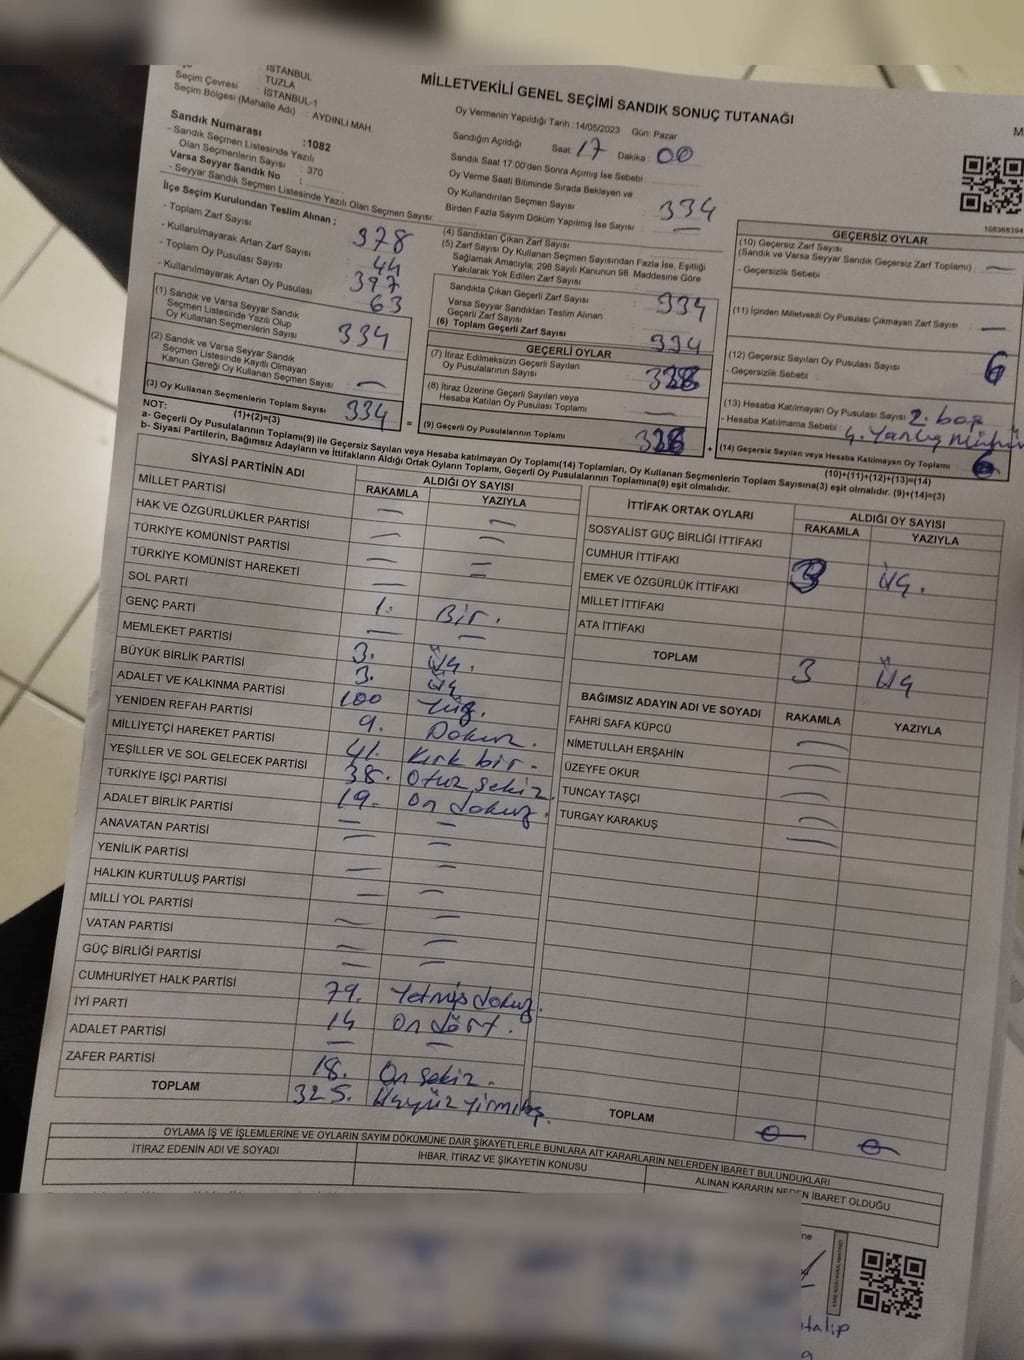 İSTANBUL
TUZLA
Seçim Çevresi : İSTANBUL-1
Seçim Bölgesi (Mahalle Adı) : AYDINLI MAH.
MİLLETVEKİLİ GENEL SEÇİMİ SANDIK SONUÇ TUTANAĞI
Oy Vermenin Yapıldığı Tarih :14/05/2023 Gün: Pazar
Sandık Numarası :1082
- Sandık Seçmen Listesinde Yazılı
Olan Seçmenlerin Sayısı : 370
Varsa Seyyar Sandık No :
- Seyyar Sandık Seçmen Listesinde Yazılı Olan Seçmen Sayısı:
Sandığın Açıldığı Saat: 17 Dakika: 00
Sandık Saat 17:00'den Sonra Açımış İse Sebebi :
Oy Verme Saati Bitiminde Sırada Bekleyen ve
Oy Kullandırılan Seçmen Sayısı : 334
Birden Fazla Sayım Döküm Yapılmış İse Sayısı : —
İlçe Seçim Kurulundan Teslim Alınan ;
- Toplam Zarf Sayısı : 378
- Kullanılmayarak Artan Zarf Sayısı : 44
- Toplam Oy Pusulası Sayısı : 397
- Kullanılmayarak Artan Oy Pusulası : 63
(1) Sandık ve Varsa Seyyar Sandık
Seçmen Listesinde Yazılı Olup
Oy Kullanan Seçmenlerin Sayısı : 334
(2) Sandık ve Varsa Seyyar Sandık
Seçmen Listesinde Kayıtlı Olmayan
Kanun Gereği Oy Kullanan Seçmen Sayısı : —
(3) Oy Kullanan Seçmenlerin Toplam Sayısı : 334
(1)+(2)=(3)
(4) Sandıktan Çıkan Zarf Sayısı
(5) Zarf Sayısı Oy Kullanan Seçmen Sayısından Fazla İse, Eşitliği
Sağlamak Amacıyla, 298 Sayılı Kanunun 98. Maddesine Göre
Yakılarak Yok Edilen Zarf Sayısı :
Sandıkta Çıkan Geçerli Zarf Sayısı : 334
Varsa Seyyar Sandıktan Teslim Alınan
Geçerli Zarf Sayısı :
(6) Toplam Geçerli Zarf Sayısı : 334
GEÇERLİ OYLAR
(7) İtiraz Edilmeksizin Geçerli Sayılan
Oy Pusulalarının Sayısı : 328
(8) İtiraz Üzerine Geçerli Sayılan veya
Hesaba Katılan Oy Pusulası Toplamı : —
= (9) Geçerli Oy Pusulalarının Toplamı : 328 +
108368394
GEÇERSİZ OYLAR
(10) Geçersiz Zarf Sayısı
(Sandık ve Varsa Seyyar Sandık Geçersiz Zarf Toplamı) : —
- Geçersizlik Sebebi :
(11) İçinden Milletvekili Oy Pusulası Çıkmayan Zarf Sayısı : —
(12) Geçersiz Sayılan Oy Pusulası Sayısı : 6
- Geçersizlik Sebebi :
(13) Hesaba Katılmayan Oy Pusulası Sayısı : 2. boş
- Hesaba Katılmama Sebebi : 4. Yanlış
(14) Geçersiz Sayılan veya Hesaba Katılmayan Oy Toplamı : 6
(10)+(11)+(12)+(13)=(14)
NOT:
a- Geçerli Oy Pusulaları Toplamı(9) ile Geçersiz Sayılan veya Hesaba katılmayan Oy Toplamı(14) Toplamları, Oy Kullanan Seçmenlerin Toplam Sayısına(3) eşit olmalıdır. (9)+(14)=(3)
b- Siyasi Partilerin, Bağımsız Adayların ve İttifakların Aldığı Ortak Oyların Toplamı, Geçerli Oy Pusulalarının Toplamına(9) eşit olmalıdır.
SİYASİ PARTİNİN ADI ALDIĞI OY SAYISI
RAKAMLA YAZIYLA
MİLLET PARTİSİ — —
HAK VE ÖZGÜRLÜKLER PARTİSİ — —
TÜRKİYE KOMÜNİST PARTİSİ — —
TÜRKİYE KOMÜNİST HAREKETİ — —
SOL PARTİ 1. Bir.
GENÇ PARTİ — —
MEMLEKET PARTİSİ 3. Üç.
BÜYÜK BİRLİK PARTİSİ 3. Üç
ADALET VE KALKINMA PARTİSİ 100 Yüz.
YENİDEN REFAH PARTİSİ 9. Dokuz.
MİLLİYETÇİ HAREKET PARTİSİ 41. Kırk bir.
YEŞİLLER VE SOL GELECEK PARTİSİ 38. Otuz sekiz.
TÜRKİYE İŞÇİ PARTİSİ 19. On dokuz.
ADALET BİRLİK PARTİSİ — —
ANAVATAN PARTİSİ — —
YENİLİK PARTİSİ — —
HALKIN KURTULUŞ PARTİSİ — —
MİLLİ YOL PARTİSİ — —
VATAN PARTİSİ — —
GÜÇ BİRLİĞİ PARTİSİ — —
CUMHURİYET HALK PARTİSİ 79. Yetmiş dokuz.
İYİ PARTİ 14 On dört.
ADALET PARTİSİ — —
ZAFER PARTİSİ 18. On sekiz.
TOPLAM 325. Üçyüz yirmi beş.
İTTİFAK ORTAK OYLARI ALDIĞI OY SAYISI
RAKAMLA YAZIYLA
SOSYALİST GÜÇ BİRLİĞİ İTTİFAKI
CUMHUR İTTİFAKI 3 Üç.
EMEK VE ÖZGÜRLÜK İTTİFAKI
MİLLET İTTİFAKI
ATA İTTİFAKI
TOPLAM 3 Üç
BAĞIMSIZ ADAYIN ADI VE SOYADI RAKAMLA YAZIYLA
FAHRİ SAFA KÜPCÜ —
NİMETULLAH ERŞAHİN —
ÜZEYFE OKUR —
TUNCAY TAŞÇI —
TURGAY KARAKUŞ —
TOPLAM 0 0
OYLAMA İŞ VE İŞLEMLERİNE VE OYLARIN SAYIM DÖKÜMÜNE DAİR ŞİKAYETLERLE BUNLARA AİT KARARLARIN NELERDEN İBARET BULUNDUKLARI
İTİRAZ EDENİN ADI VE SOYADI İHBAR, İTİRAZ VE ŞİKAYETİN KONUSU ALINAN KARARIN NEDEN İBARET OLDUĞU